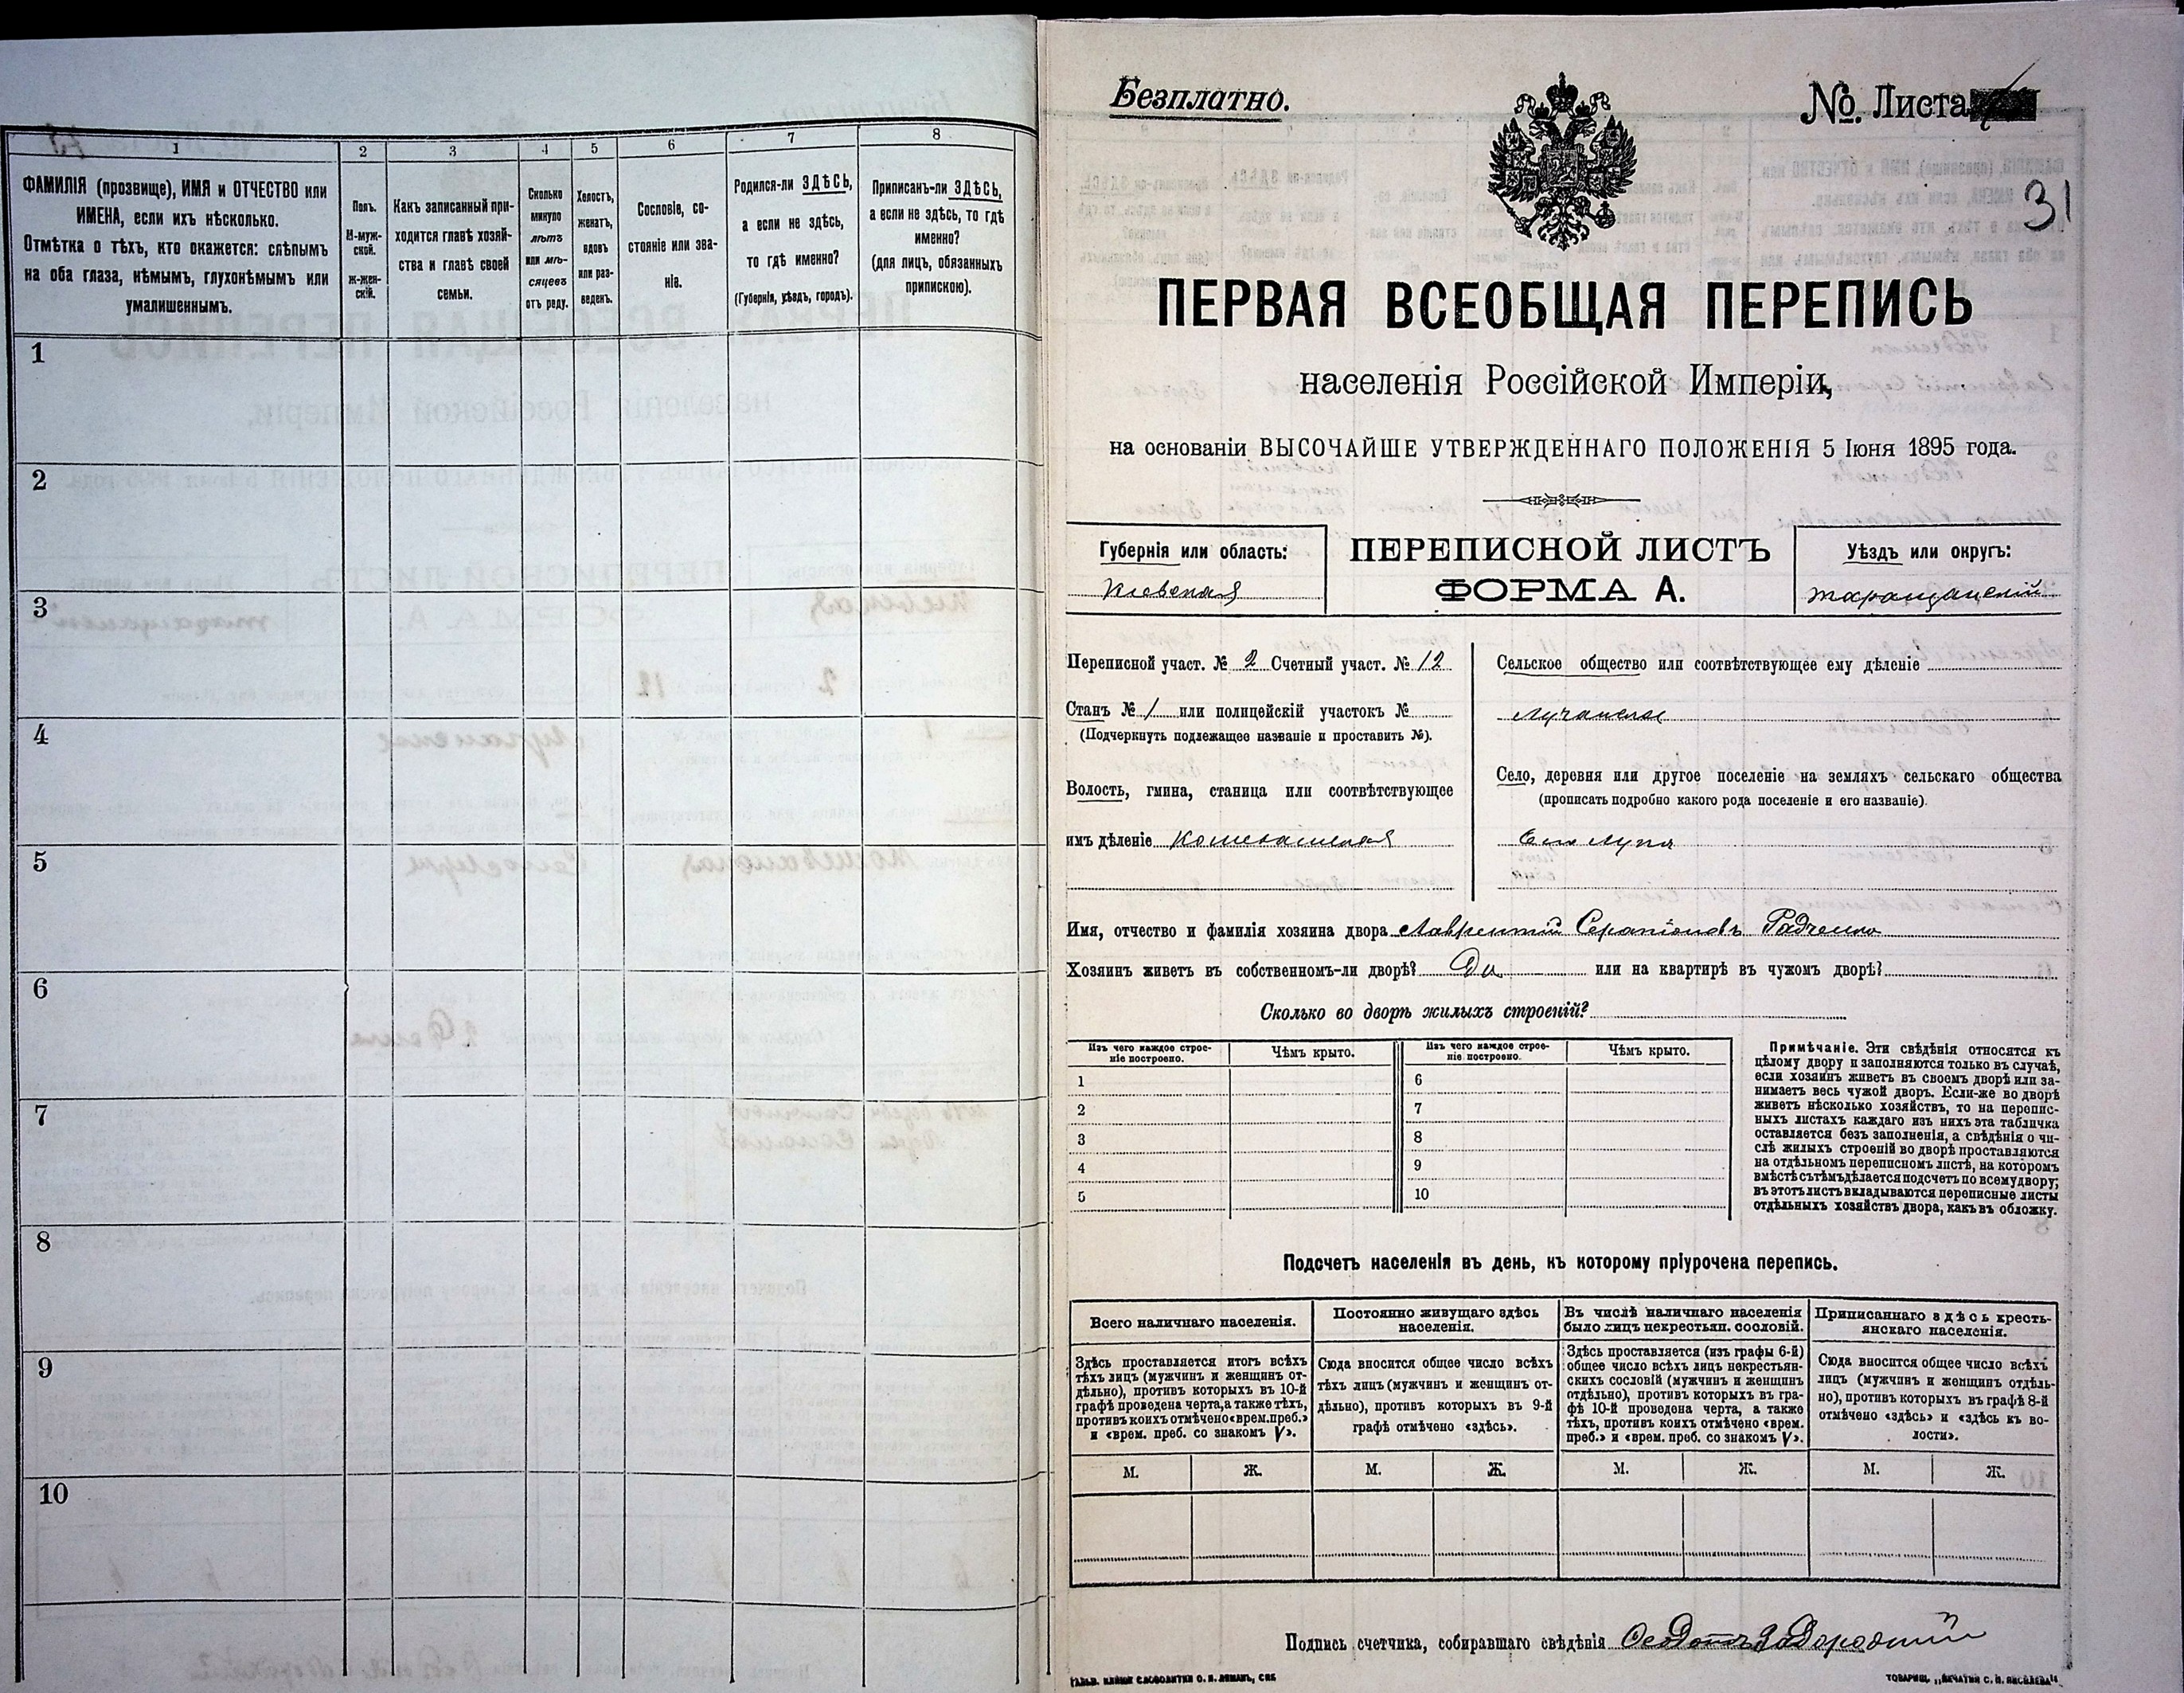 1 2 3 4 5 6 7 8
ФАМИЛІЯ (прозвище), ИМЯ и ОТЧЕСТВО или
ИМЕНА, если ихъ нѣсколько.
Отмѣтка о тѣхъ, кто окажется: слѣпымъ
на оба глаза, нѣмымъ, глухонѣмымъ или
умалишеннымъ.
Полъ.
М-муж-
ской.
Ж-жен-
скій.
Какъ записанный при-
ходится главѣ хозяй-
ства и главѣ своей
семьи.
Сколько
минуло
лѣтъ
или мѣ-
сяцевъ
отъ роду.
Холостъ,
женатъ,
вдовъ
или раз-
веденъ.
Сословіе, со-
стояніе или зва-
ніе.
Родился-ли ЗДѢСЬ,
а если не здѣсь,
то гдѣ именно?
(Губернія, уѣздъ, городъ).
Приписанъ-ли ЗДѢСЬ,
а если не здѣсь, то гдѣ
именно?
(для лицъ, обязанныхъ
припискою).
1
2
3
4
5
6
7
8
9
10
Безплатно.
№. Листа
31
ПЕРВАЯ ВСЕОБЩАЯ ПЕРЕПИСЬ
населенія Россійской Имперіи,
на основаніи ВЫСОЧАЙШЕ УТВЕРЖДЕННАГО ПОЛОЖЕНІЯ 5 Іюня 1895 года.
Губернія или область:
Кіевская
ПЕРЕПИСНОЙ ЛИСТЪ
ФОРМА А.
Уѣздъ или округъ:
Таращанскій
Переписной участ. № 2 Счетный участ. № 12
Станъ № 1 или полицейскій участокъ №
(Подчеркнуть подлежащее названіе и проставить №).
Волость, гмина, станица или соотвѣтствующее
имъ дѣленіе
Сельское общество или соотвѣтствующее ему дѣленіе
Лучанское
Село, деревня или другое поселеніе на земляхъ сельскаго общества
(прописать подробно какого рода поселеніе и его названіе).
Имя, отчество и фамилія хозяина двора Лаврентій Серапіоновъ Радченко
Хозяинъ живетъ въ собственномъ-ли дворѣ? Да или на квартирѣ въ чужомъ дворѣ?
Сколько во дворѣ жилыхъ строеній?
Изъ чего каждое строе-
ніе построено.
Чѣмъ крыто.
Изъ чего каждое строе-
ніе построено.
Чѣмъ крыто.
1 6
2 7
3 8
4 9
5 10
Примѣчаніе. Эти свѣдѣнія относятся къ
цѣлому двору и заполняются только въ случаѣ,
если хозяинъ живетъ въ своемъ дворѣ или за-
нимаетъ весь чужой дворъ. Если-же во дворѣ
живетъ нѣсколько хозяйствъ, то на перепис-
ныхъ листахъ каждаго изъ нихъ эта табличка
оставляется безъ заполненія, а свѣдѣнія о чи-
слѣ жилыхъ строеній во дворѣ проставляются
на отдѣльномъ переписномъ листѣ, на которомъ
вмѣстѣ съ тѣмъ дѣлается подсчетъ по всему двору;
въ этотъ листъ вкладываются переписные листы
отдѣльныхъ хозяйствъ двора, какъ въ обложку.
Подсчетъ населенія въ день, къ которому пріурочена перепись.
Всего наличнаго населенія.
Постоянно живущаго здѣсь
населенія.
Въ числѣ наличнаго населенія
было лицъ некрестьян. сословій.
Приписаннаго здѣсь кресть-
янскаго населенія.
Здѣсь проставляется итогъ всѣхъ
тѣхъ лицъ (мужчинъ и женщинъ от-
дѣльно), противъ которыхъ въ 10-й
графѣ проведена черта, а также тѣхъ,
противъ коихъ отмѣчено «врем. преб.»
и «врем. преб. со знакомъ V».
Сюда вносится общее число всѣхъ
тѣхъ лицъ (мужчинъ и женщинъ от-
дѣльно), противъ которыхъ въ 9-й
графѣ отмѣчено «здѣсь».
Здѣсь проставляется (изъ графы 6-й)
общее число всѣхъ лицъ некрестьян-
скихъ сословій (мужчинъ и женщинъ
отдѣльно), противъ которыхъ въ гра-
фѣ 10-й проведена черта, а также
тѣхъ, противъ коихъ отмѣчено «врем.
преб.» и «врем. преб. со знакомъ V».
Сюда вносится общее число всѣхъ
лицъ (мужчинъ и женщинъ отдѣль-
но), противъ которыхъ въ графѣ 8-й
отмѣчено «здѣсь» и «здѣсь въ во-
лости».
М. Ж. М. Ж. М. Ж. М. Ж.
Подпись счетчика, собиравшаго свѣдѣнія